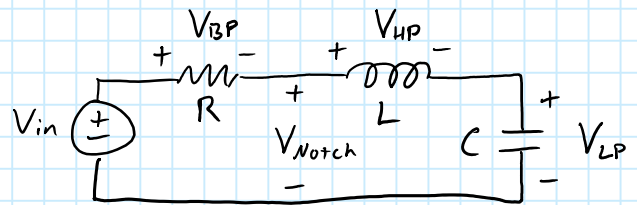 V_BP V_HP
+ - + -
+
R + L +
Vin + - V_Notch C V_LP
- -